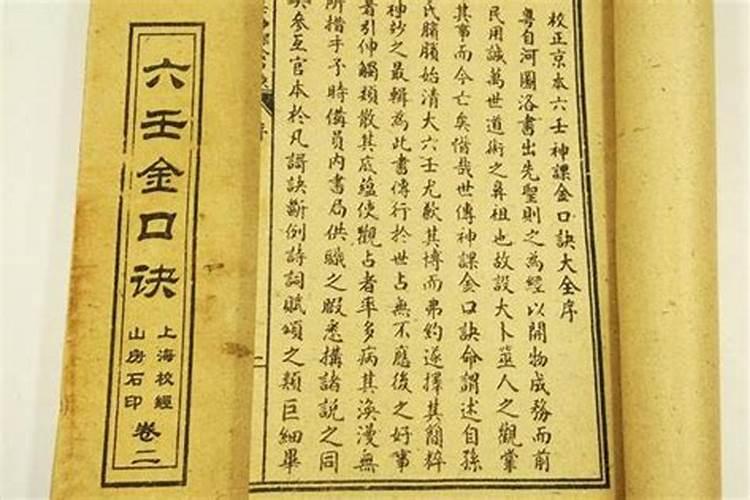 六壬金口诀
上海校經
山房石印
卷二
校正京本六壬神課金口訣大全序
粤自河圖洛書出先聖則之為經以開物成務而前
民用誠萬世道術之鼻祖也故設大卜筮人之觀掌
其事而今亡矣惜哉世傳神課金口訣命謂述自孫
氏臏臏始清大六壬尤歎其博而弗約遂擇其簡粹
神妙之最輯為此書傳行於世占無不應後之好事
者引伸觸類散其底蘊使觀占者率多病其渙漫無
所措手予時備員內書局供職之暇悉搆諸說之同
異參互官本於凡謌訣斷例詩詞賦頌之類巨細畢